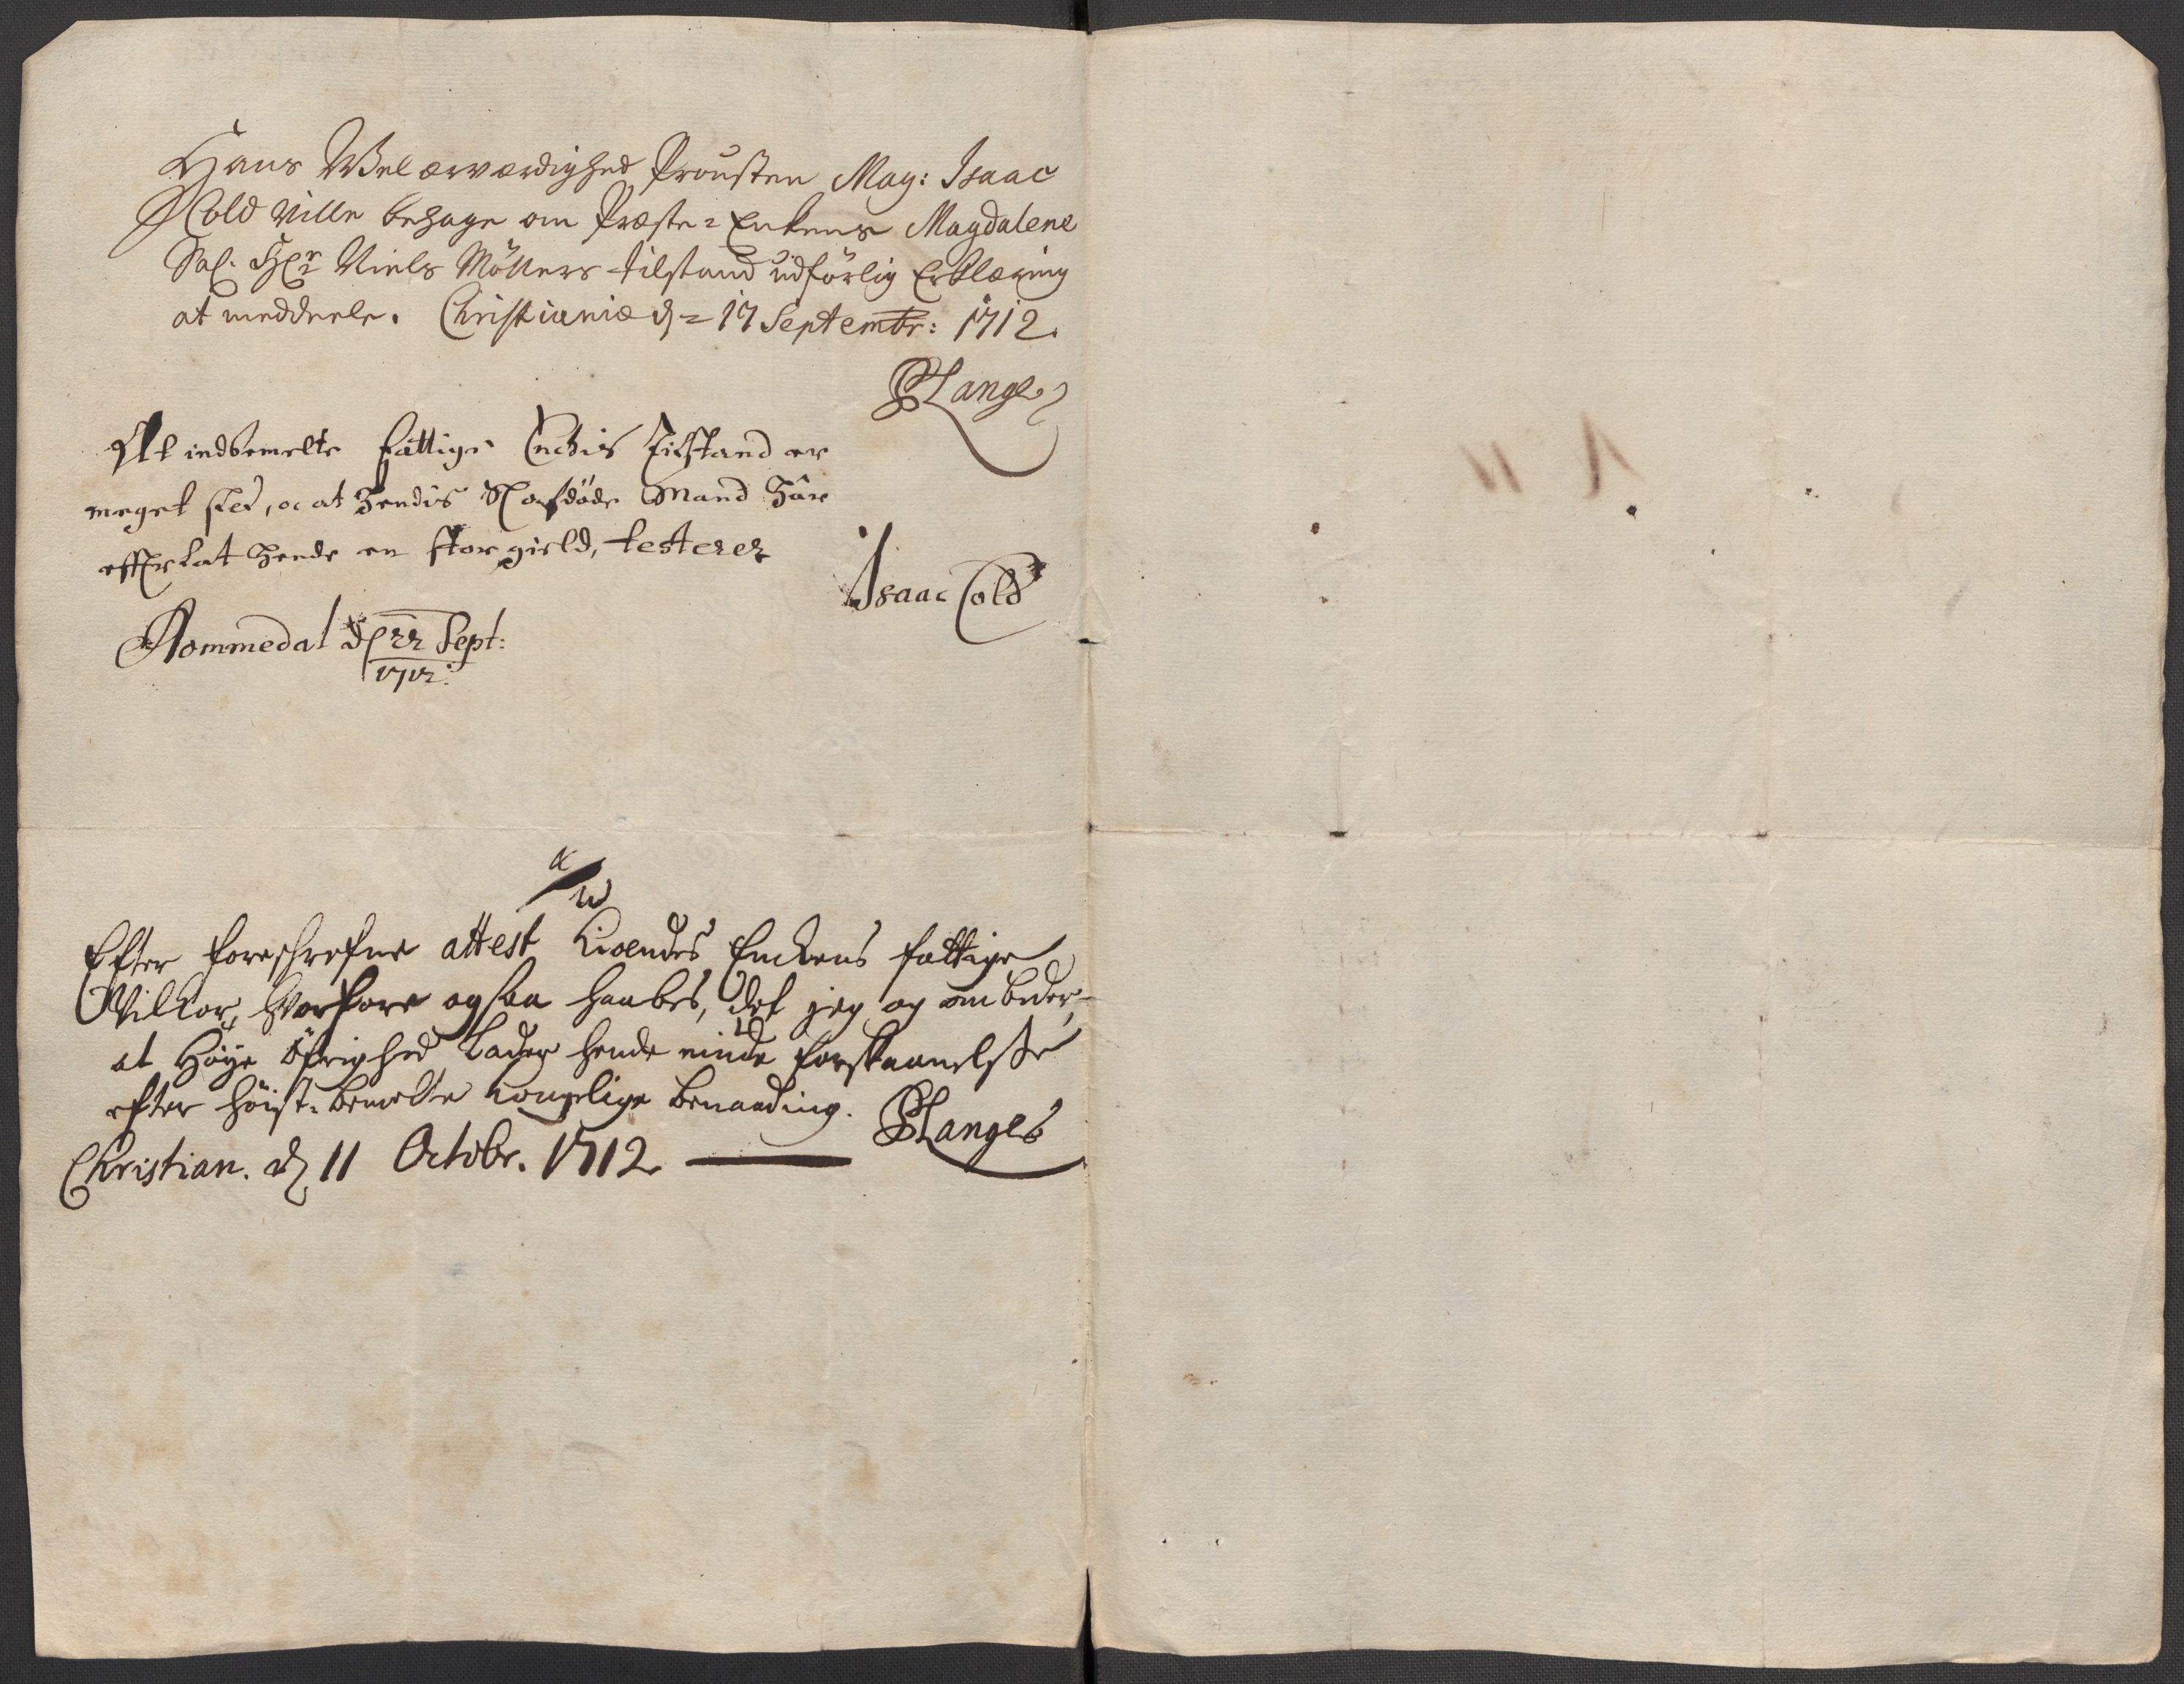 Hans Welærværdighed Prousten Mag: Isaac
Cold ville behage om Præste-Enkens Magdalene
Sal. Hr Niels Möllers tilstand udförlig Erklæring
at meddeele. Christianiæ d= 17 Septembr: 1712.
Lange
At indbemelte fattige Enckis Tilstand er
meget slet, oc at Hendis Sl afdöde Mand Har
effterlat Hende en stor gield, testerer
Isaac Cold
Rommedal d 22 Sept:
1712.
Efter foreschrefne attest kiendes Enckens fattige
Vilkor, hvorfore ogsaa haabes, det jeg og om beder,
at Høye Öfrighed Lader hende niude forskaanelsse
efter höist-bemelte Kongelige benaading.
Lange
Christian. d 11 Octobr. 1712